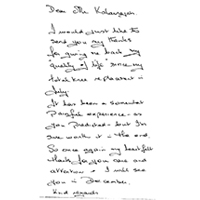 Dear Mr Kalairajah,
I would just like to
send you my thanks
for giving me back my
"quality of life" since my
total knee replacement in
July.
It has been a somewhat
painful experience - as
you predicted - but I'm
sure worth it in the end.
So once again my heartfelt
thanks for your care and
attention & I will see
you in December.
Kind regards